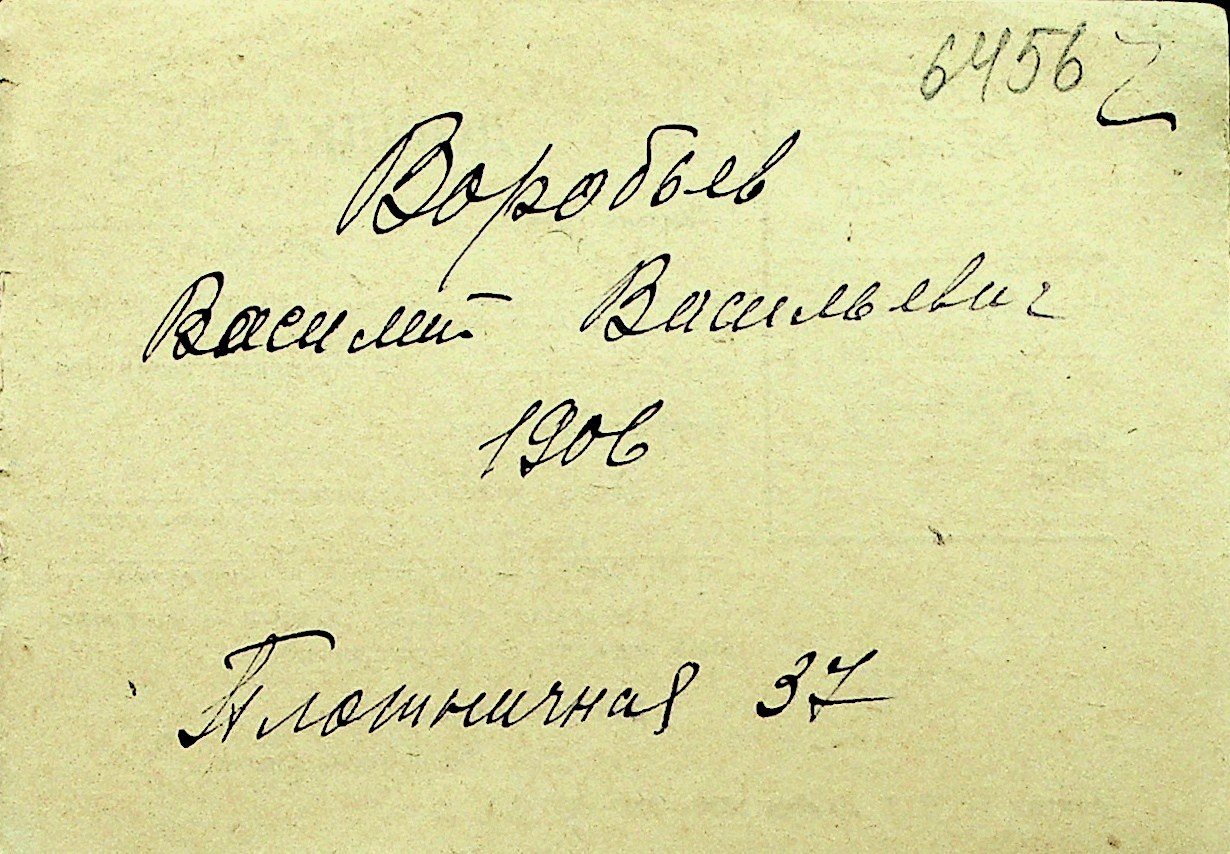 6456
Воробьев
Василий Васильевич
1906
Плотничная 37